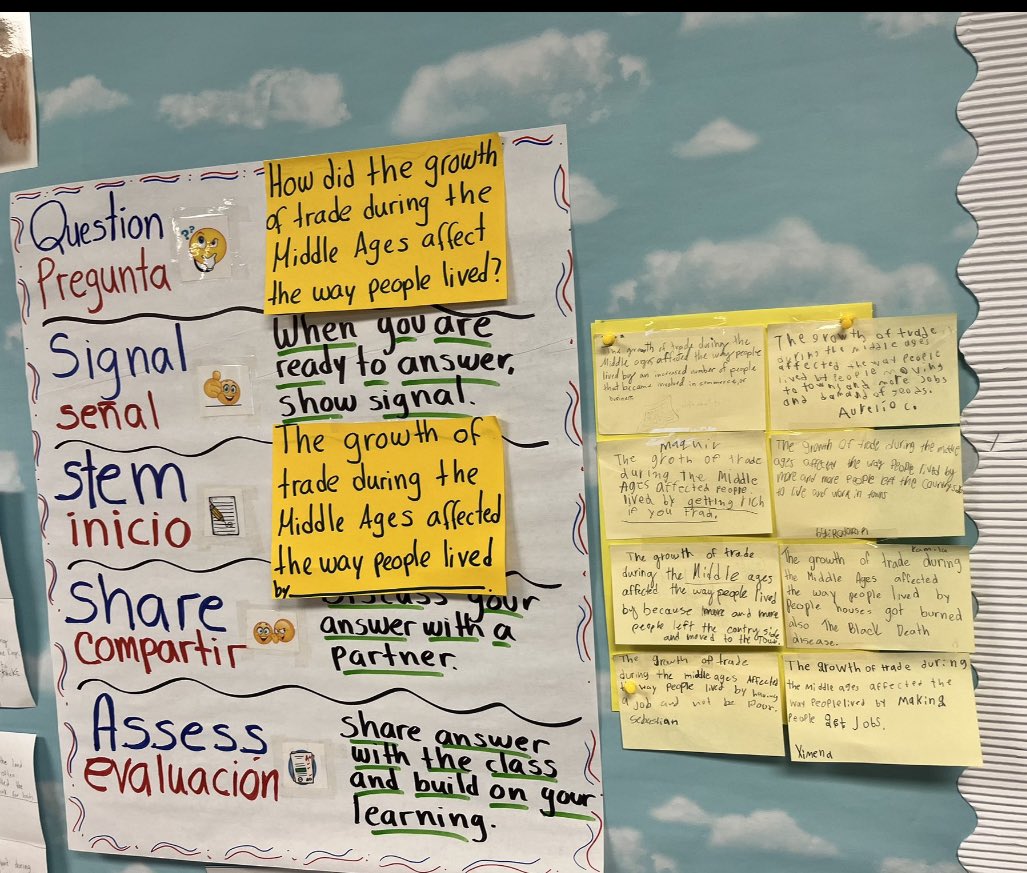 Question
Pregunta
How did the growth
of trade during the
Middle Ages affect
the way people lived?
Signal
señal
When you are
ready to answer,
show signal.
stem
inicio
The growth of
trade during the
Middle Ages affected
the way people lived
by
share
compartir
Discuss your
answer with a
partner.
Assess
evaluación
share answer
with the class
and build on your
learning.
The growth of trade during the
Middle ages affected the way people
lived by an increased number of people
that became involved in commerce or
business
The growth of trade
during the middle ages
affected the way people
lived by people moving
to towns and more Jobs
and demand of goods.
Aurelio C.
The groth of trade
during The Middle
Ages affected people
lived by getting rich
if you trad.
The growth of trade during the middle
ages affected the way people lived by
more and more people left the Countryside
to live and work in towns
The growth of trade
during the Middle ages
affected the way people lived
by because more and more
people left the contry side
and moved to the Town.
Kamila
The growth of trade during
the Middle Ages affected
the way people lived by
People houses got burned
also The Black Death
disease.
The growth of trade
during the middle ages Affected
way people lived by having
a job and not be Poor.
sebastian
The growth of trade during
the Middle ages affected the
way People lived by making
people get Jobs.
Ximena